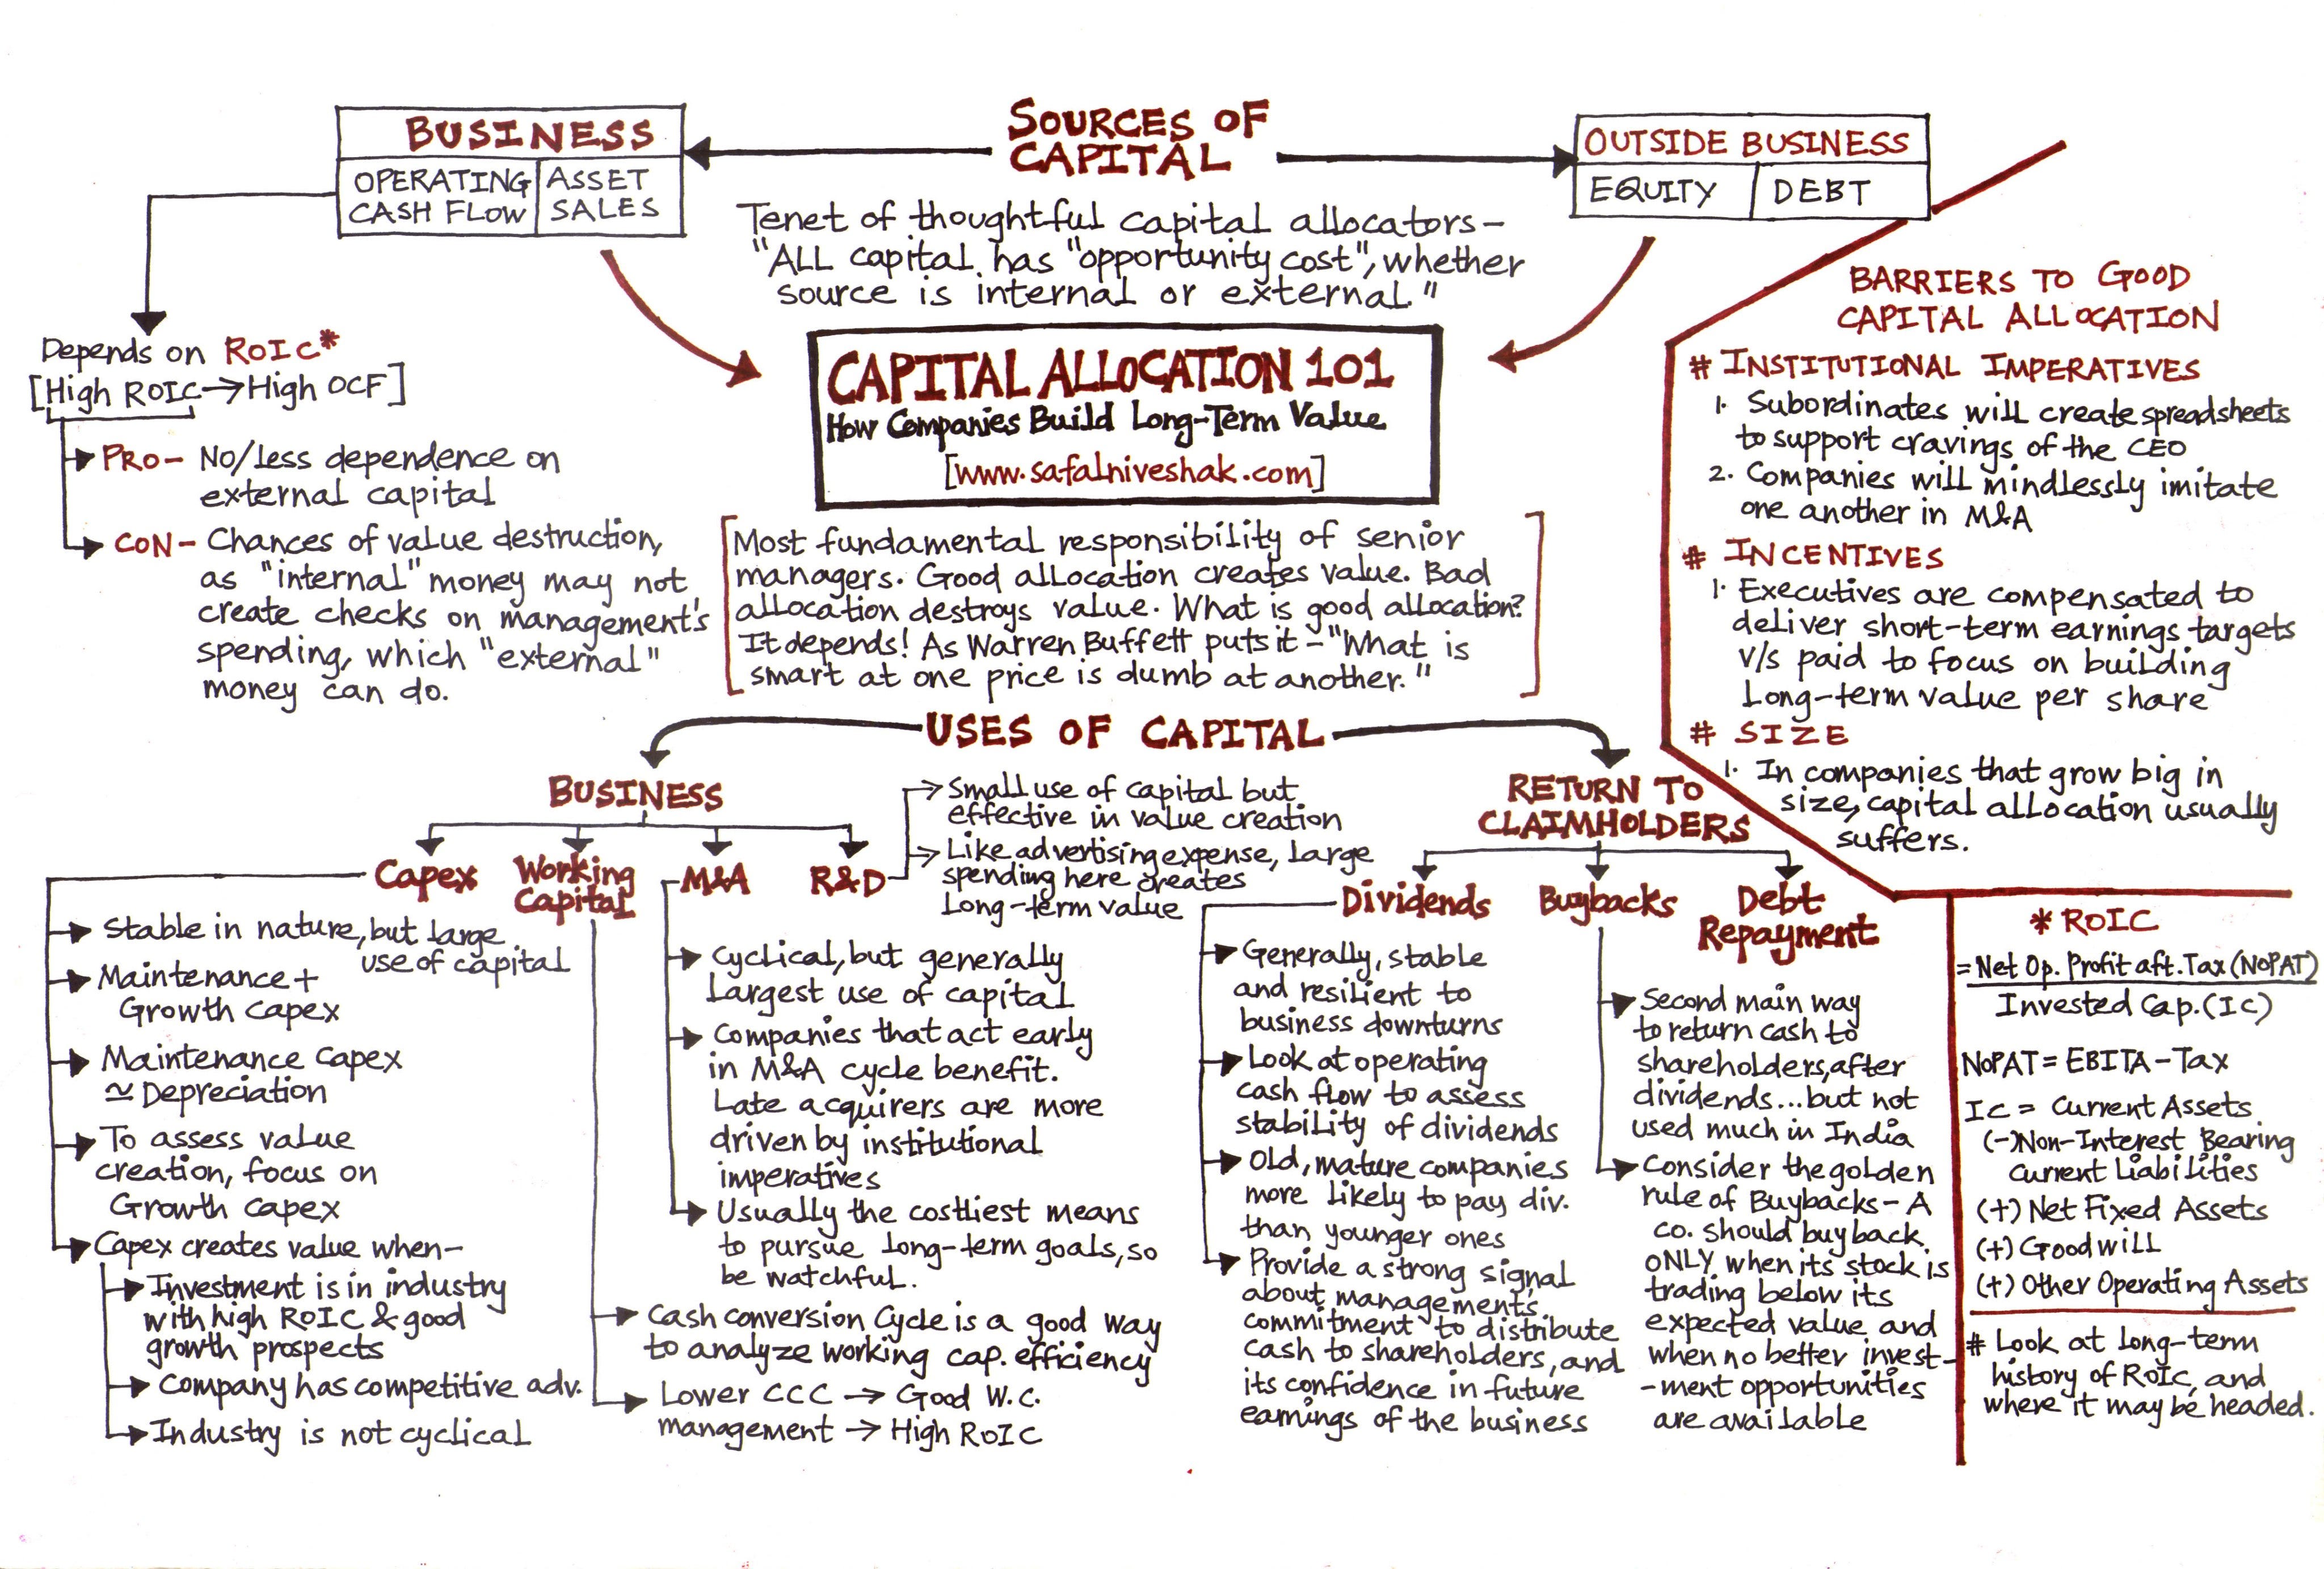 SOURCES OF
CAPITAL
BUSINESS
OPERATING
CASH FLOW
ASSET
SALES
OUTSIDE BUSINESS
EQUITY
DEBT
Tenet of thoughtful capital allocators-
"ALL capital has "opportunity cost", whether
source is internal or external."
CAPITAL ALLOCATION 101
How Companies Build Long-Term Value
[www.safalniveshak.com]
Depends on ROIC*
[High ROIC→High OCF]
PRO- No/Less dependence on
external capital
CON- Chances of value destruction,
as "internal" money may not
create checks on management's
spending, which "external"
money can do.
Most fundamental responsibility of senior
managers. Good allocation creates value. Bad
allocation destroys value. What is good allocation?
It depends! As Warren Buffett puts it-"What is
smart at one price is dumb at another."
BARRIERS TO GOOD
CAPITAL ALLOCATION
# INSTITUTIONAL IMPERATIVES
1. Subordinates will create spreadsheets
to support cravings of the CEO
2. Companies will mindlessly imitate
one another in M&A
# INCENTIVES
1. Executives are compensated to
deliver short-term earnings targets
v/s paid to focus on building
Long-term value per share
# SIZE
1. In companies that grow big in
size, capital allocation usually
suffers.
USES OF CAPITAL
BUSINESS
Capex
Working
Capital
M&A
R&D
Small use of capital but
effective in value creation
Like advertising expense, Large
spending here creates
Long-term value
Stable in nature, but large
use of capital
Maintenance +
Growth Capex
Maintenance Capex
≃ Depreciation
To assess value
creation, focus on
Growth Capex
Capex creates value when-
Investment is in industry
with high ROIC & good
growth prospects
Company has competitive adv.
Industry is not cyclical
Cyclical, but generally
Largest use of capital
Companies that act early
in M&A cycle benefit.
Late acquirers are more
driven by institutional
imperatives
Usually the costliest means
to pursue long-term goals, so
be watchful.
Cash conversion Cycle is a good way
to analyze working cap. efficiency
Lower CCC → Good W.C.
management → High ROIC
RETURN TO
CLAIMHOLDERS
Dividends
Buybacks
Debt
Repayment
Generally, stable
and resilient to
business downturns
Look at operating
cash flow to assess
stability of dividends
Old, mature companies
more likely to pay div.
than younger ones
Provide a strong signal
about managements
commitment to distribute
cash to shareholders, and
its confidence in future
earnings of the business
Second main way
to return cash to
shareholders, after
dividends...but not
used much in India
Consider the golden
rule of Buybacks - A
co. should buy back
ONLY when its stock is
trading below its
expected value and
when no better invest-
-ment opportunities
are available
* ROIC
= Net Op. Profit aft. Tax (NOPAT)
Invested Cap. (IC)
NOPAT = EBITA - Tax
IC = Current Assets
(-) Non-Interest Bearing
Current Liabilities
(+) Net Fixed Assets
(+) Goodwill
(+) Other Operating Assets
# Look at long-term
history of ROIC, and
where it may be headed.